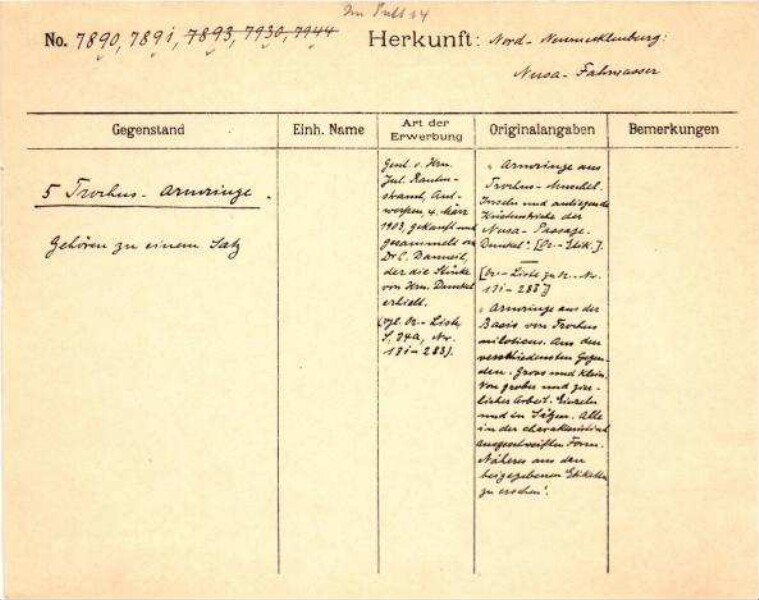 Im Pult 14
No. 7890, 7891, 7893, 7930, 7944 Herkunft: Nord-Neumecklenburg:
Nusa-Fahrwasser
Gegenstand
Einh. Name
Art der
Erwerbung
Originalangaben
Bemerkungen
5 Trochus-Armringe.
Gehören zu einem Satz
Gesch. v. Hrn.
Jul. Rauten-
strauch, Ant-
werpen, 4. März
1903, gekauft und
gesammelt von
Dr. C. Danneil,
der die Stücke
von Hrn. Dunckel
erhielt.
(vgl. Or.-Liste,
S. 24a, Nr.
181-283).
"Armringe aus
Trochus-Muschel.
Inseln und anliegende
Küstenstriche der
Nusa-Passage.
Dunckel". [Or.-Etik.].
[Or.-Liste zu Nr.
181-283]
"Armringe aus der
Basis von Trochus
niloticus. Aus den
verschiedensten Gegen-
den. Gross und klein.
Von grober und zier-
licher Arbeit. Einzeln
und in Sätzen. Alle
in der charakteristisch
ausgeschweiften Form.
Näheres aus den
beigegebenen Etiketten
zu ersehen".